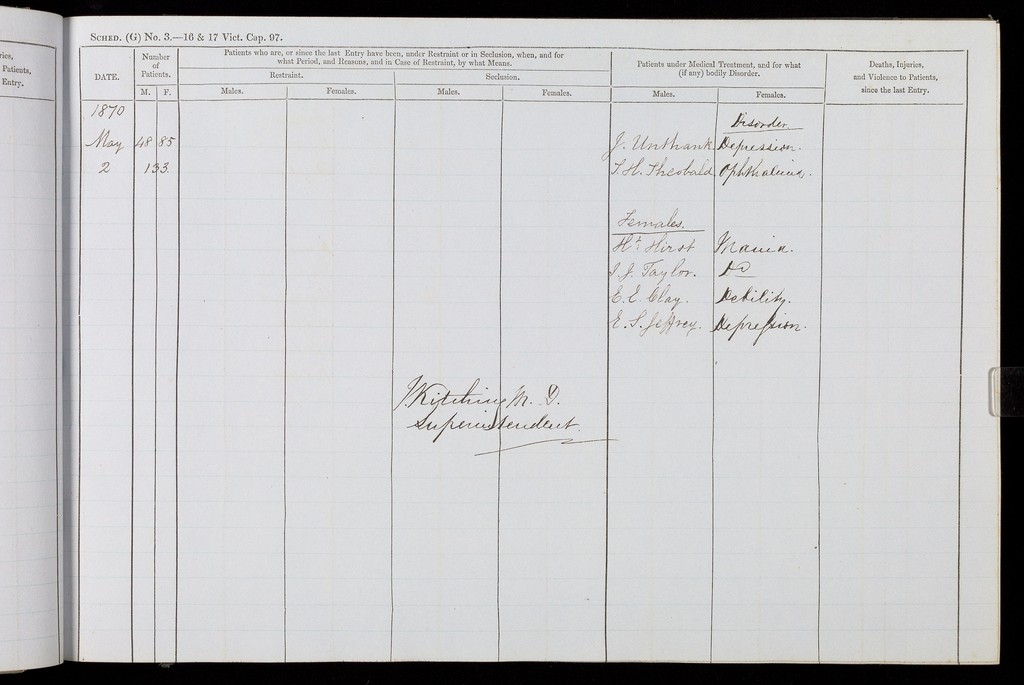 ries,
Patients,
Entry.
SCHED. (G) No. 3.—16 & 17 Vict. Cap. 97.
DATE.
Number
of
Patients.
M. F.
Patients who are, or since the last Entry have been, under Restraint or in Seclusion, when, and for
what Period, and Reasons, and in Case of Restraint, by what Means.
Restraint. Seclusion.
Males. Females. Males. Females.
Patients under Medical Treatment, and for what
(if any) bodily Disorder.
Males. Females.
Deaths, Injuries,
and Violence to Patients,
since the last Entry.
1870
Disorder.
May 48 85 J. Unthank Depression.
2 133 T. H. Theobald Ophthalmia.
Females.
Ht. Hirst Mania.
I. J. Taylor. Do
E. E. Clay. Debility.
E. S. Jeffrey. Depression.
J. Kitching M. D.
Superintendent.